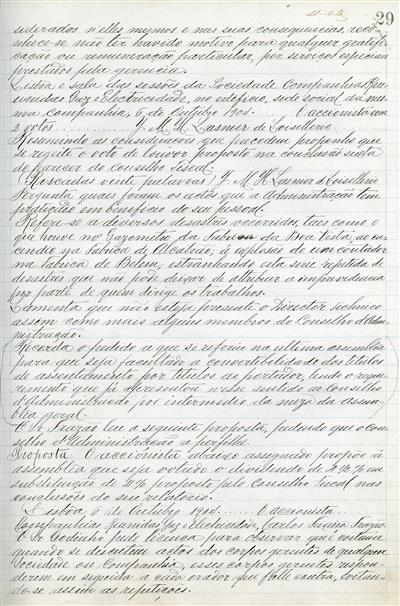 29
siderados n'elles mesmos e nas suas consequencias, reco-
nhece-se não ter havido motivo para qualquer gratifi-
cação ou remuneração particular, por serviços especiaes
prestados pela gerencia.
Lisboa e sala das sessões da Sociedade Companhias Reu-
nidas Gaz e Electricidade, no edificio, sede social da mes-
ma companhia, 6 de Outubro 1904. O accionista com
2 votos J. M. H. Lasnier de Loisellerie
Resumindo as considerações que precedem proponho que
se rejeite o voto de louvor proposto na conclusão sexta
do parecer do Conselho Fiscal.
Rascadas vinte palavras J. M. H. Lasnier de Loisellerie
Pergunta quaes foram os actos que a Administração tem
praticado em beneficio do seu pessoal.
Refere-se a diversos desastres occorridos, taes como o
que houve no Gazometro da Fabrica da Boa Vista, o in-
cendio na Fabrica de Alcantara, a explosão de um contador
na Fabrica de Belem, estranhando esta serie repetida de
desastres que não pode deixar de attribuir a imprevidencia
por parte de quem dirige os trabalhos.
Lamenta que não esteja presente o Director technico
assim como mais alguns membros do Conselho d'Admi-
nistração.
Recorda o pedido a que se referiu na ultima assemblea
para que seja facilitada a convertibilidade dos titulos
de assentamento por titulos ao portador, lendo o reque-
rimento que já apresentou n'esse sentido ao Conselho
d'Administração por intermedio da meza da assem-
blea geral.
O Sr. Frazão leu a seguinte proposta, pedindo que o Con-
selho d'Administração a perfilhe.
Proposta. O accionista abaixo assignado propõe á
assemblea que seja votado o dividendo de % em
substituição de % proposto pelo Conselho Fiscal nas
conclusões do seu relatorio.
Lisboa 6 de Outubro 1904. O accionista
Companhias Reunidas Gaz e Electricidade, Carlos Frazão
O Sr. Godinho pede licença para observar que é costume
quando se discutem actos dos corpos gerentes de qualquer
Sociedade ou Companhia, esses corpos gerentes respon-
derem em seguida a cada orador que falle contra, evitan-
do-se assim as repetições.